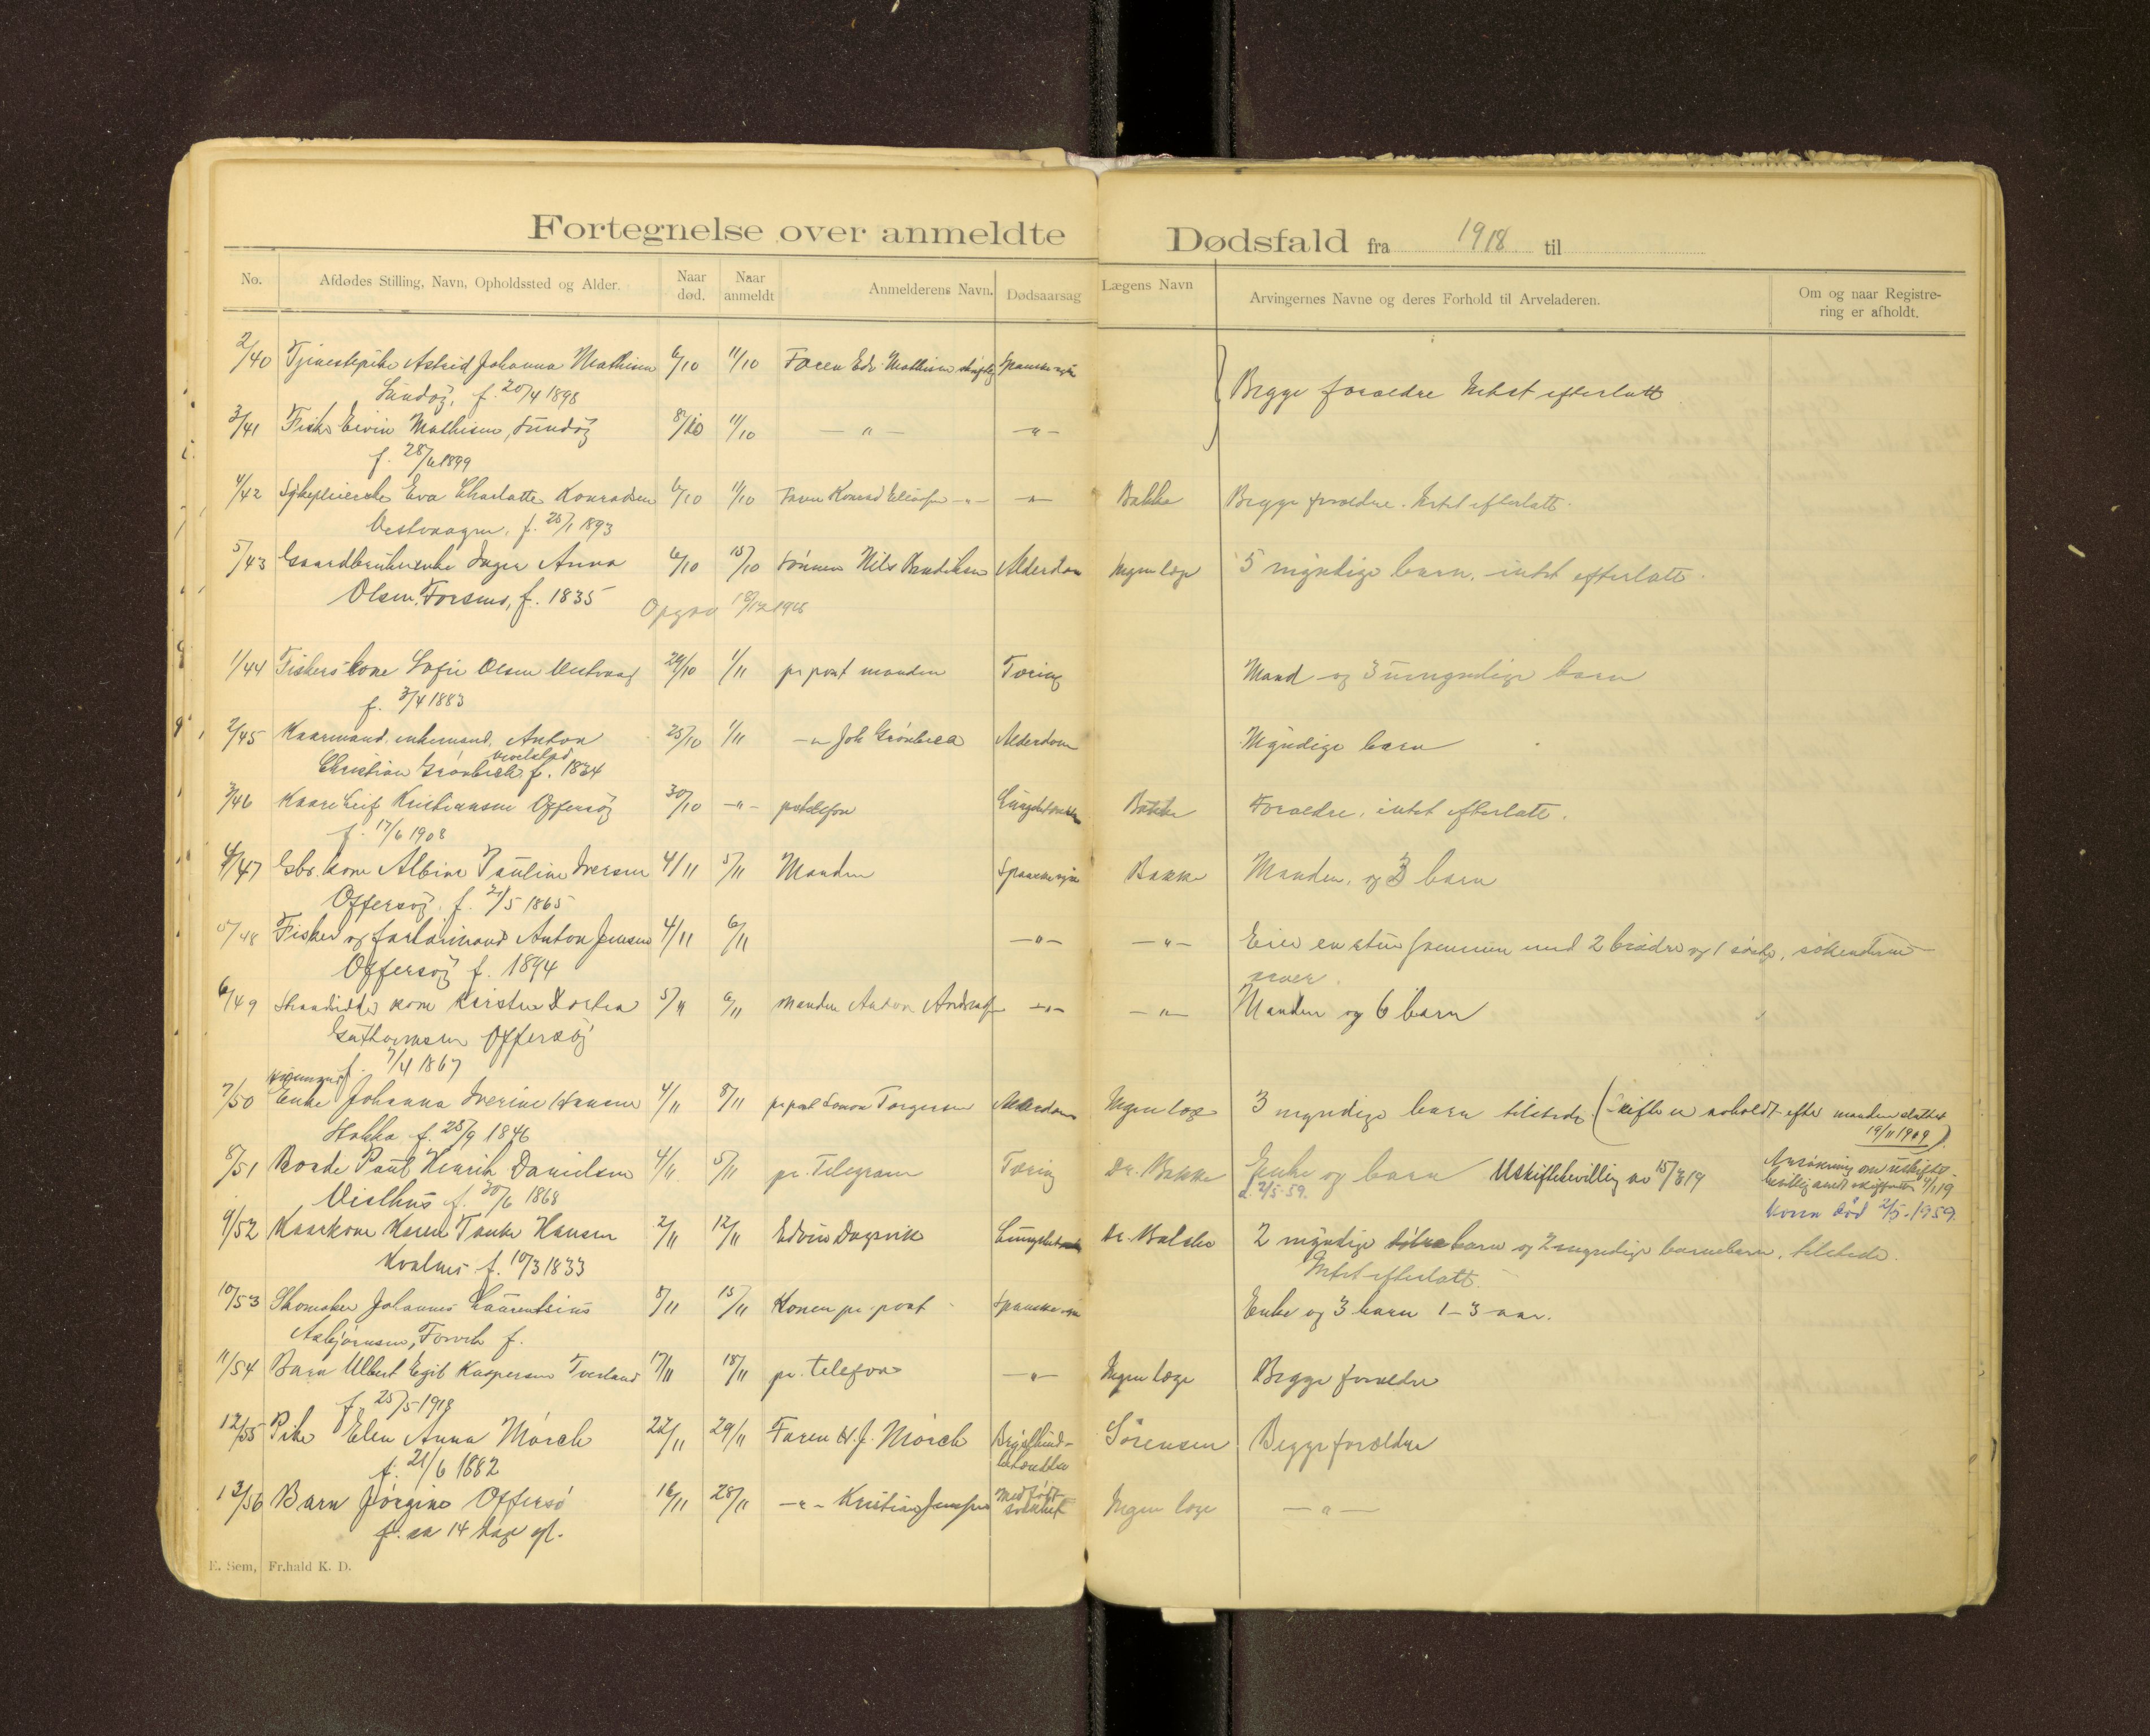 Fortegnelse over anmeldte Dødsfald fra 1918 til
No. Afdødes Stilling, Navn, Opholdssted og Alder. Naar død. Naar anmeldt Anmelderens Navn. Dødsaarsag Lægens Navn Arvingernes Navne og deres Forhold til Arveladeren. Om og naar Registrering er afholdt.
2/40 Tjenestepike Astrid Johanna Mathisen 6/10 11/10 Faren Edv. Mathisen Spanskesyke Begge foraeldre Intet efterlatt
Sundøy, f. 20/4 1898
3/41 Fisker Ervin Mathisen, Sundøy 8/10 11/10 — " — — " —
f. 28/6 1899
4/42 Sykepleierske Eva Charlotte Konradsen 6/10 11/10 Faren Konrad — " — Bakke Begge foraeldre. Intet efterlatt.
Vestvaagen, f. 25/1 1893
5/43 Gaardbrukerenke Inger Anna 6/10 15/10 Sønnen Nils Bendiksen Alderdom Ingen læge 5 myndige barn, intet efterlatt.
Olsen, Forsmo, f. 1835 Opgav 18/12 1918
1/44 Fiskers kone Sofie Olsen Vestvaag 29/10 1/11 pr post manden Tæring Mand og 3 umyndige barn
f. 3/4 1883
2/45 Kaarmand, enkemand, Anton 25/10 1/11 — " Joh Grønbeck Alderdom Myndige barn
Christian Grønbeck f. 1834
3/46 Kaare Leif Kristiansen Offersøy 30/10 — " — pr telefon Bakke Foraeldre, intet efterlatt.
f. 17/6 1908
4/47 Gbr. kone Albine Pauline Iversen 4/11 5/11 Manden Spanskesyke Bakke Manden, og 3 barn
Offersøy f. 21/5 1865
5/48 Fisker og Anton Jensen 4/11 6/11 — " — — " — Eier en stue sammen med 2 brødre og 1 søster,
Offersøy f. 1894 arver.
6/49 kone Kirstine Dortea 5/11 6/11 Manden Anton — " — — " — Manden og 6 barn
Guthormsen Offersøy
f. 7/4 1867
7/50 Enke Johanna Iverine Hansen 4/11 8/11 pr post Simon Torgersen Alderdom Ingen læge 3 myndige barn tilstede. (Skifte er avholdt efter manden sluttet
Stokka f. 25/9 1846 19/11 1909)
8/51 Poul Henrik Danielsen 4/11 5/11 pr. Telegram Tæring Dr. Bakke Enke og barn Uskiftebevilling av 15/3 19 Ansøkning om uskifte-
Visthus f. 30/6 1868 d. 2/5-59. 4/1 19
Konen død 2/5-1959.
9/52 Kaarkone Karen Hansen 2/11 12/11 Edvin Dagsvik Dr. Bakke 2 myndige barn og 2 umyndige barnebarn, tilstede.
Kvalnes f. 10/3 1833 Intet efterlatt.
10/53 Skomaker Johannes Laurentsius 8/11 15/11 Konen pr. post Spanskesyke Enke og 3 barn 1-3 aar.
Asbjørnsen, Forvik f.
11/54 Barn Albert Egil Kaspersen Tverland 17/11 18/11 pr. telefon — " — Ingen læge Begge foraeldre
f. 25/5 1918
12/55 Pike Elen Anna Mörch 22/11 29/11 Faren H. J. Mörch Sörensen Begge forældre
f. 21/6 1882
13/56 Barn Jörgine Offersö 16/11 28/11 — " — Kristian Medfødt svakhet Ingen læge — " —
ca 14 dage gl.
E. Sem, Fr.hald K. D.